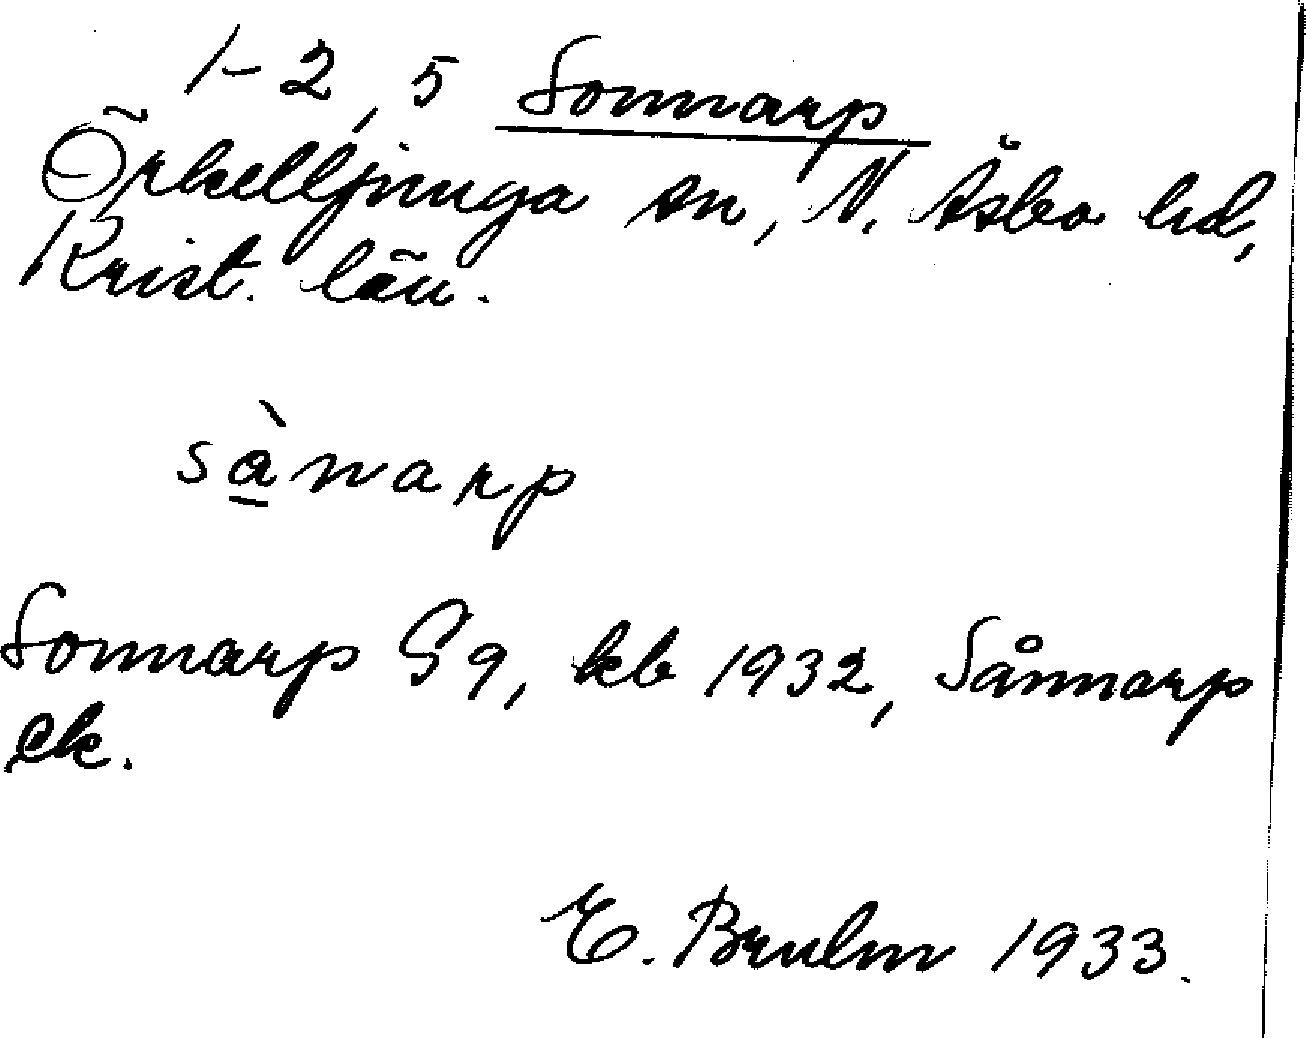 1-2, 5 Sonnarp
Örkelljunga sn, N. Åsbo hd,
Krist. län.
sànarp
Sonnarp G 9, kb 1932, Sånnarp
ek.
E. Bruhn 1933.